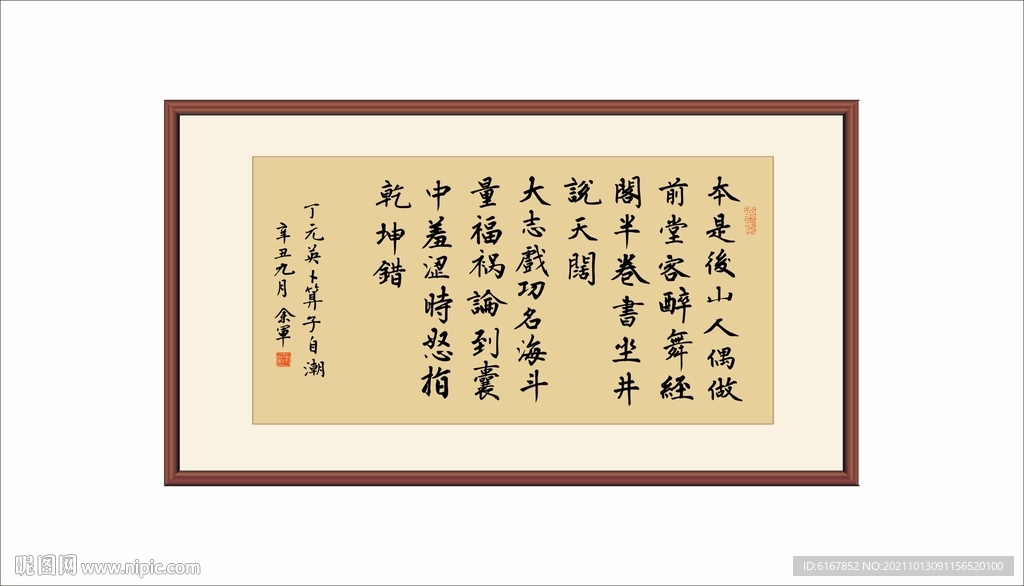 本是後山人偶做
前堂客醉舞經
閣半卷書坐井
說天闊
大志戲功名海斗
量福禍論到囊
中羞澀時怒指
乾坤錯
丁元英卜算子自潮
辛丑九月 余軍
昵图网 www.nipic.com
ID:6167852 NO:20211013091156520100